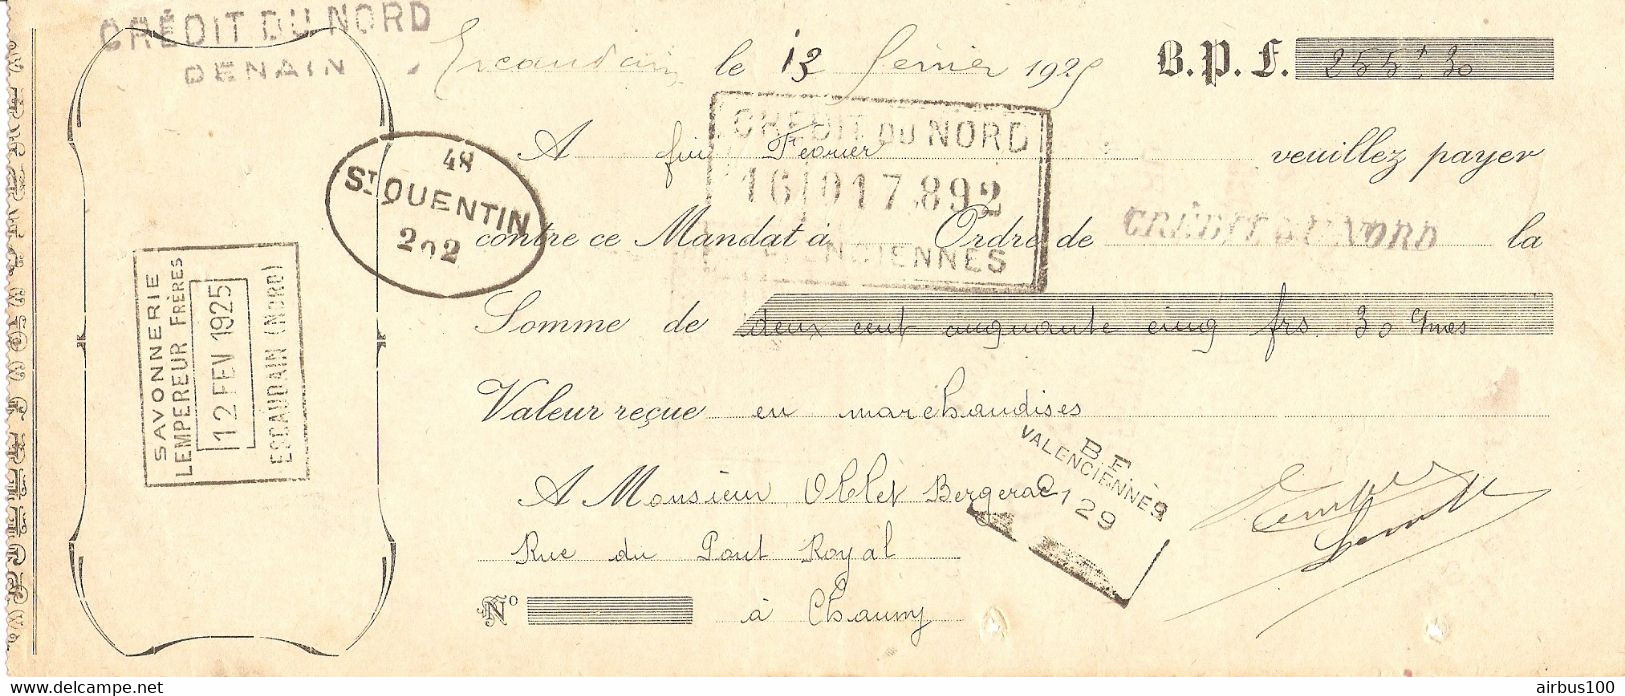 CRÉDIT DU NORD
DENAIN
Escaudain le 13 février 1925 B.P.F. 255f30
A fin Février veuillez payer
contre ce Mandat à Ordre de CRÉDIT DU NORD la
Somme de deux cent cinquante cinq frs 30 cmes
Valeur reçue en marchandises
A Monsieur Ollet Bergerac
Rue du Pont Royal
à Chauny
No
CREDIT DU NORD
16 017.892
ENCIENNES
48
ST QUENTIN
202
SAVONNERIE
LEMPEREUR FRÈRES
12 FEV 1925
ESCAUDAIN (NORD)
B F
VALENCIENNES
129
delcampe.net
airbus100